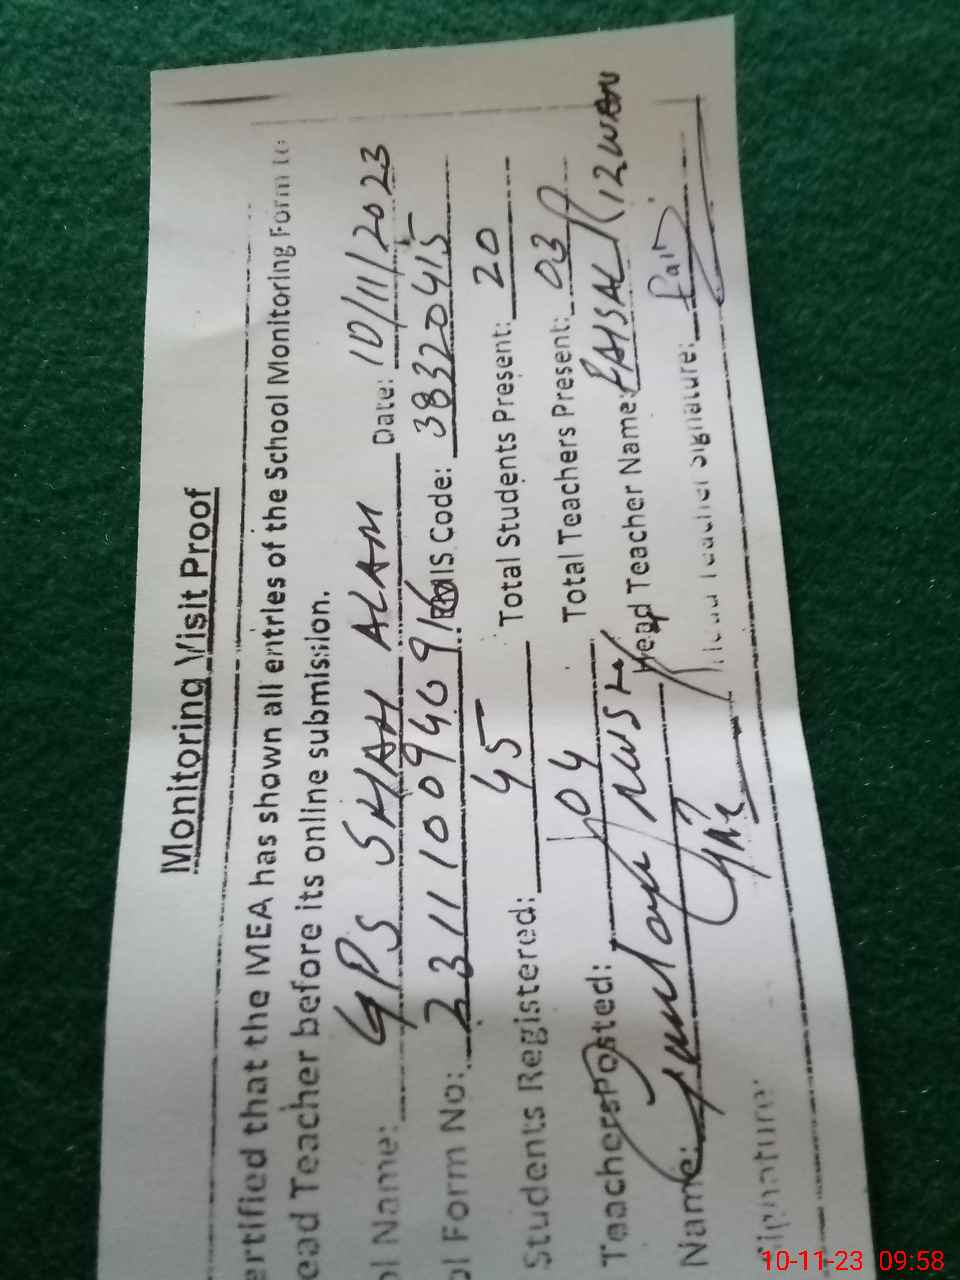 Monitoring Visit Proof
ertified that the MEA has shown all entries of the School Monitoring Form to
ead Teacher before its online submission.
ol Name: GPS SHAH ALAM Date: 10/11/2023
ol Form No: 2311100946916 EMIS Code: 38320415
Students Registered: 45 Total Students Present: 20
Teachers Posted: 04 Total Teachers Present: 03
Name: Head Teacher Name: FAISAL
Signature: Head Teacher Signature:
10-11-23 09:58